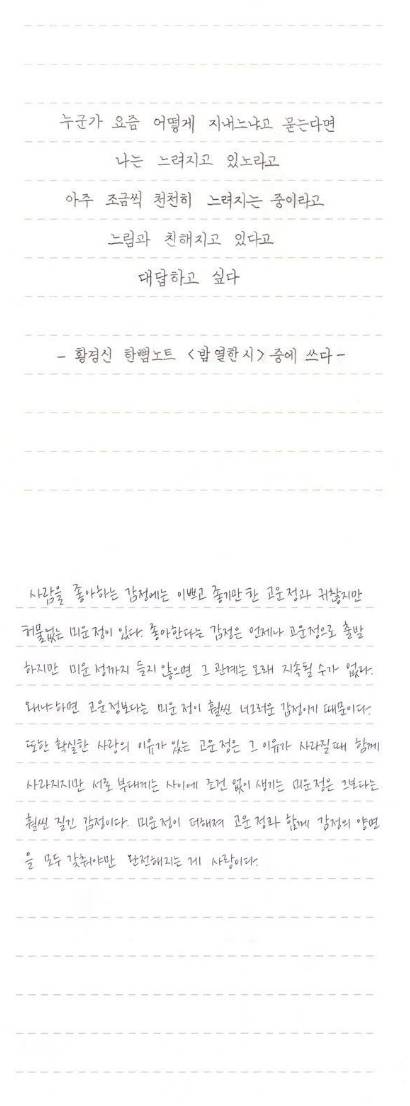 누군가 요즘 어떻게 지내느냐고 묻는다면
나는 느려지고 있노라고
아주 조금씩 천천히 느려지는 중이라고
느림과 친해지고 있다고
대답하고 싶다
- 황경신 한뼘노트 <밤 열한시> 중에 쓰다 -
사람을 좋아하는 감정에는 이쁘고 좋기만 한 고운정과 귀찮지만
허물없는 미운정이 있다. 좋아한다는 감정은 언제나 고운정으로 출발
하지만 미운 정까지 들지 않으면 그 관계는 오래 지속될 수가 없다.
왜냐하면 고운정보다는 미운정이 훨씬 너그러운 감정이기 때문이다.
또한 확실한 사랑의 이유가 있는 고운정은 그 이유가 사라질 때 함께
사라지지만 서로 부대끼는 사이에 조건 없이 생기는 미운정은 그보다는
훨씬 질긴 감정이다. 미운정이 더해져 고운정과 함께 감정의 양면
을 모두 갖춰야만 완전해지는 게 사랑이다.